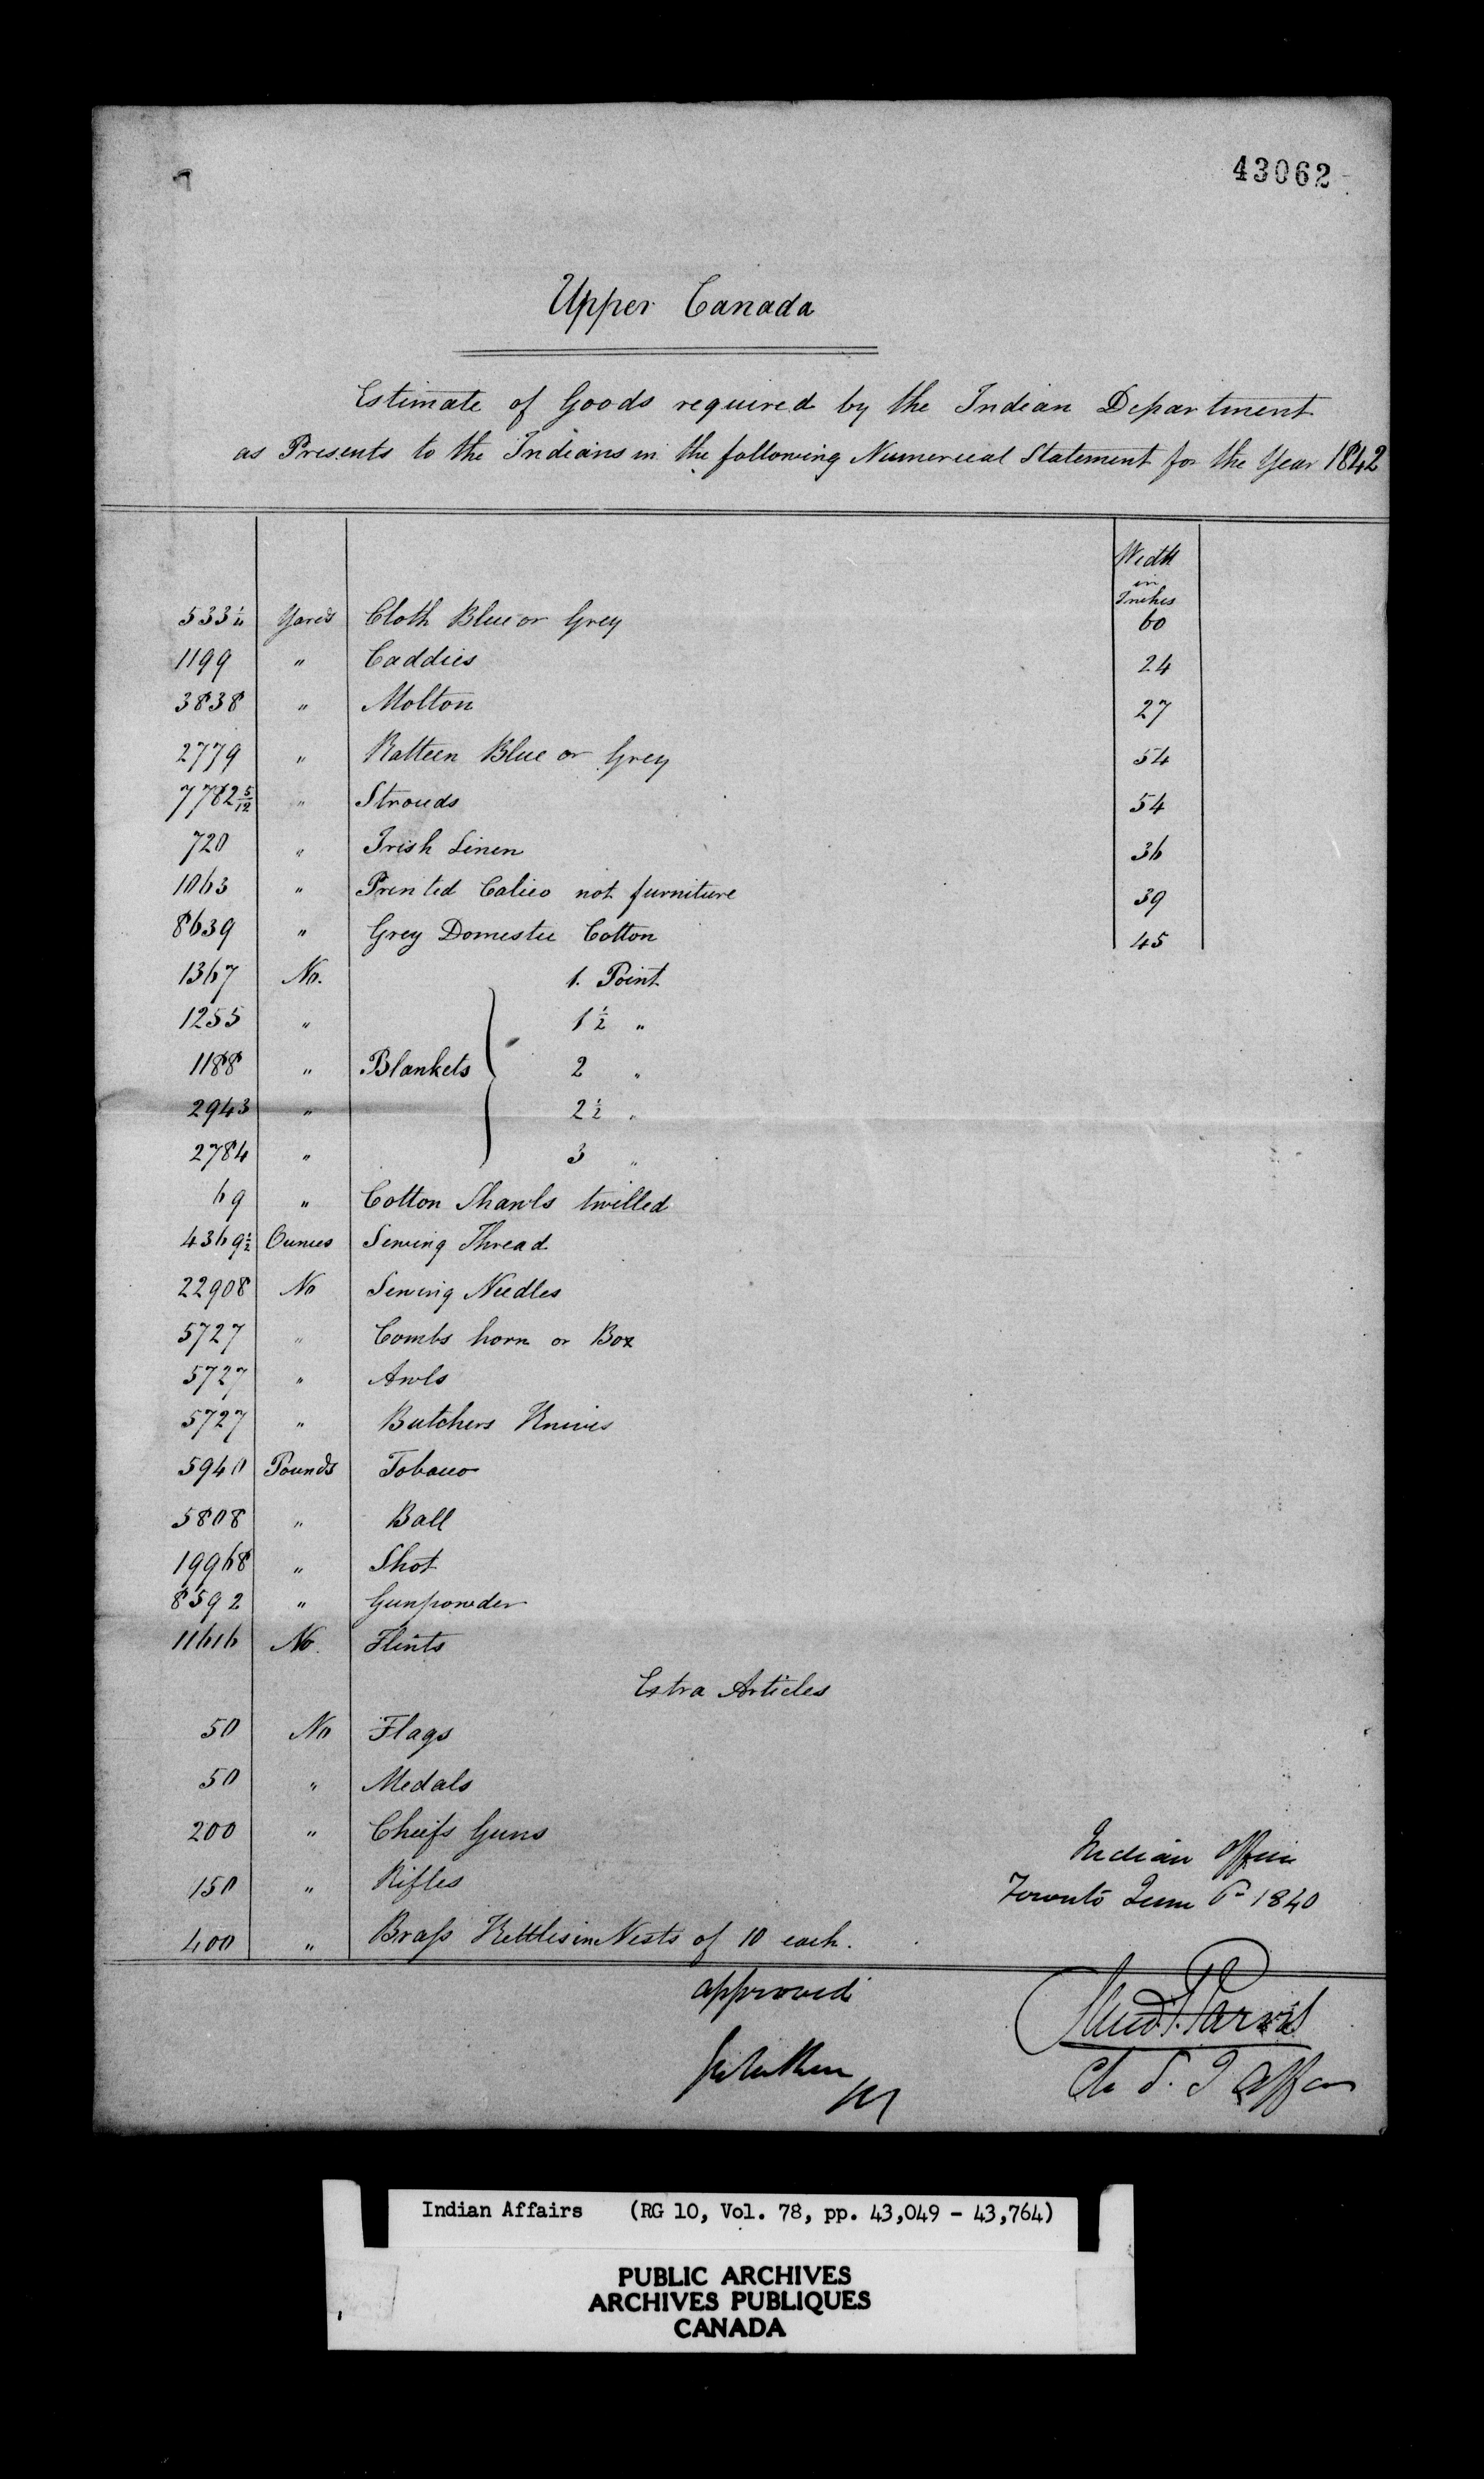 43062
Upper Canada
Estimate of Goods required by the Indian Department
as Presents to the Indians in the following Numerical Statement for the Year 1842
Width
in
Inches
533 1/4 Yards Cloth Blue or Grey 60
1199 " Caddies 24
3838 " Molton 27
2779 " Ratteen Blue or Grey 54
7782 5/12 " Strouds 54
720 " Irish Linen 36
1063 " Printed Calico not furniture 39
8639 " Grey Domestic Cotton 45
1367 No. 1. Point
1255 " 1 1/2 "
1188 " Blankets 2 "
2943 " 2 1/2 "
2784 " 3 "
69 " Cotton Shawls twilled
4369 1/2 Ounces Sewing Thread
22908 No Sewing Needles
5727 " Combs horn or Box
5727 " Awls
5727 " Butchers Knives
5940 Pounds Tobacco
5808 " Ball
19968 " Shot
8592 " Gunpowder
11616 No. Flints
Extra Articles
50 No Flags
50 " Medals
200 " Chiefs Guns
150 " Rifles
400 " Brass Kettles in Nests of 10 each.
Indian Office
Toronto June 6th 1840
approved
Jarvis
Ch S. I Affairs
Indian Affairs (RG 10, Vol. 78, pp. 43,049 - 43,764)
PUBLIC ARCHIVES
ARCHIVES PUBLIQUES
CANADA